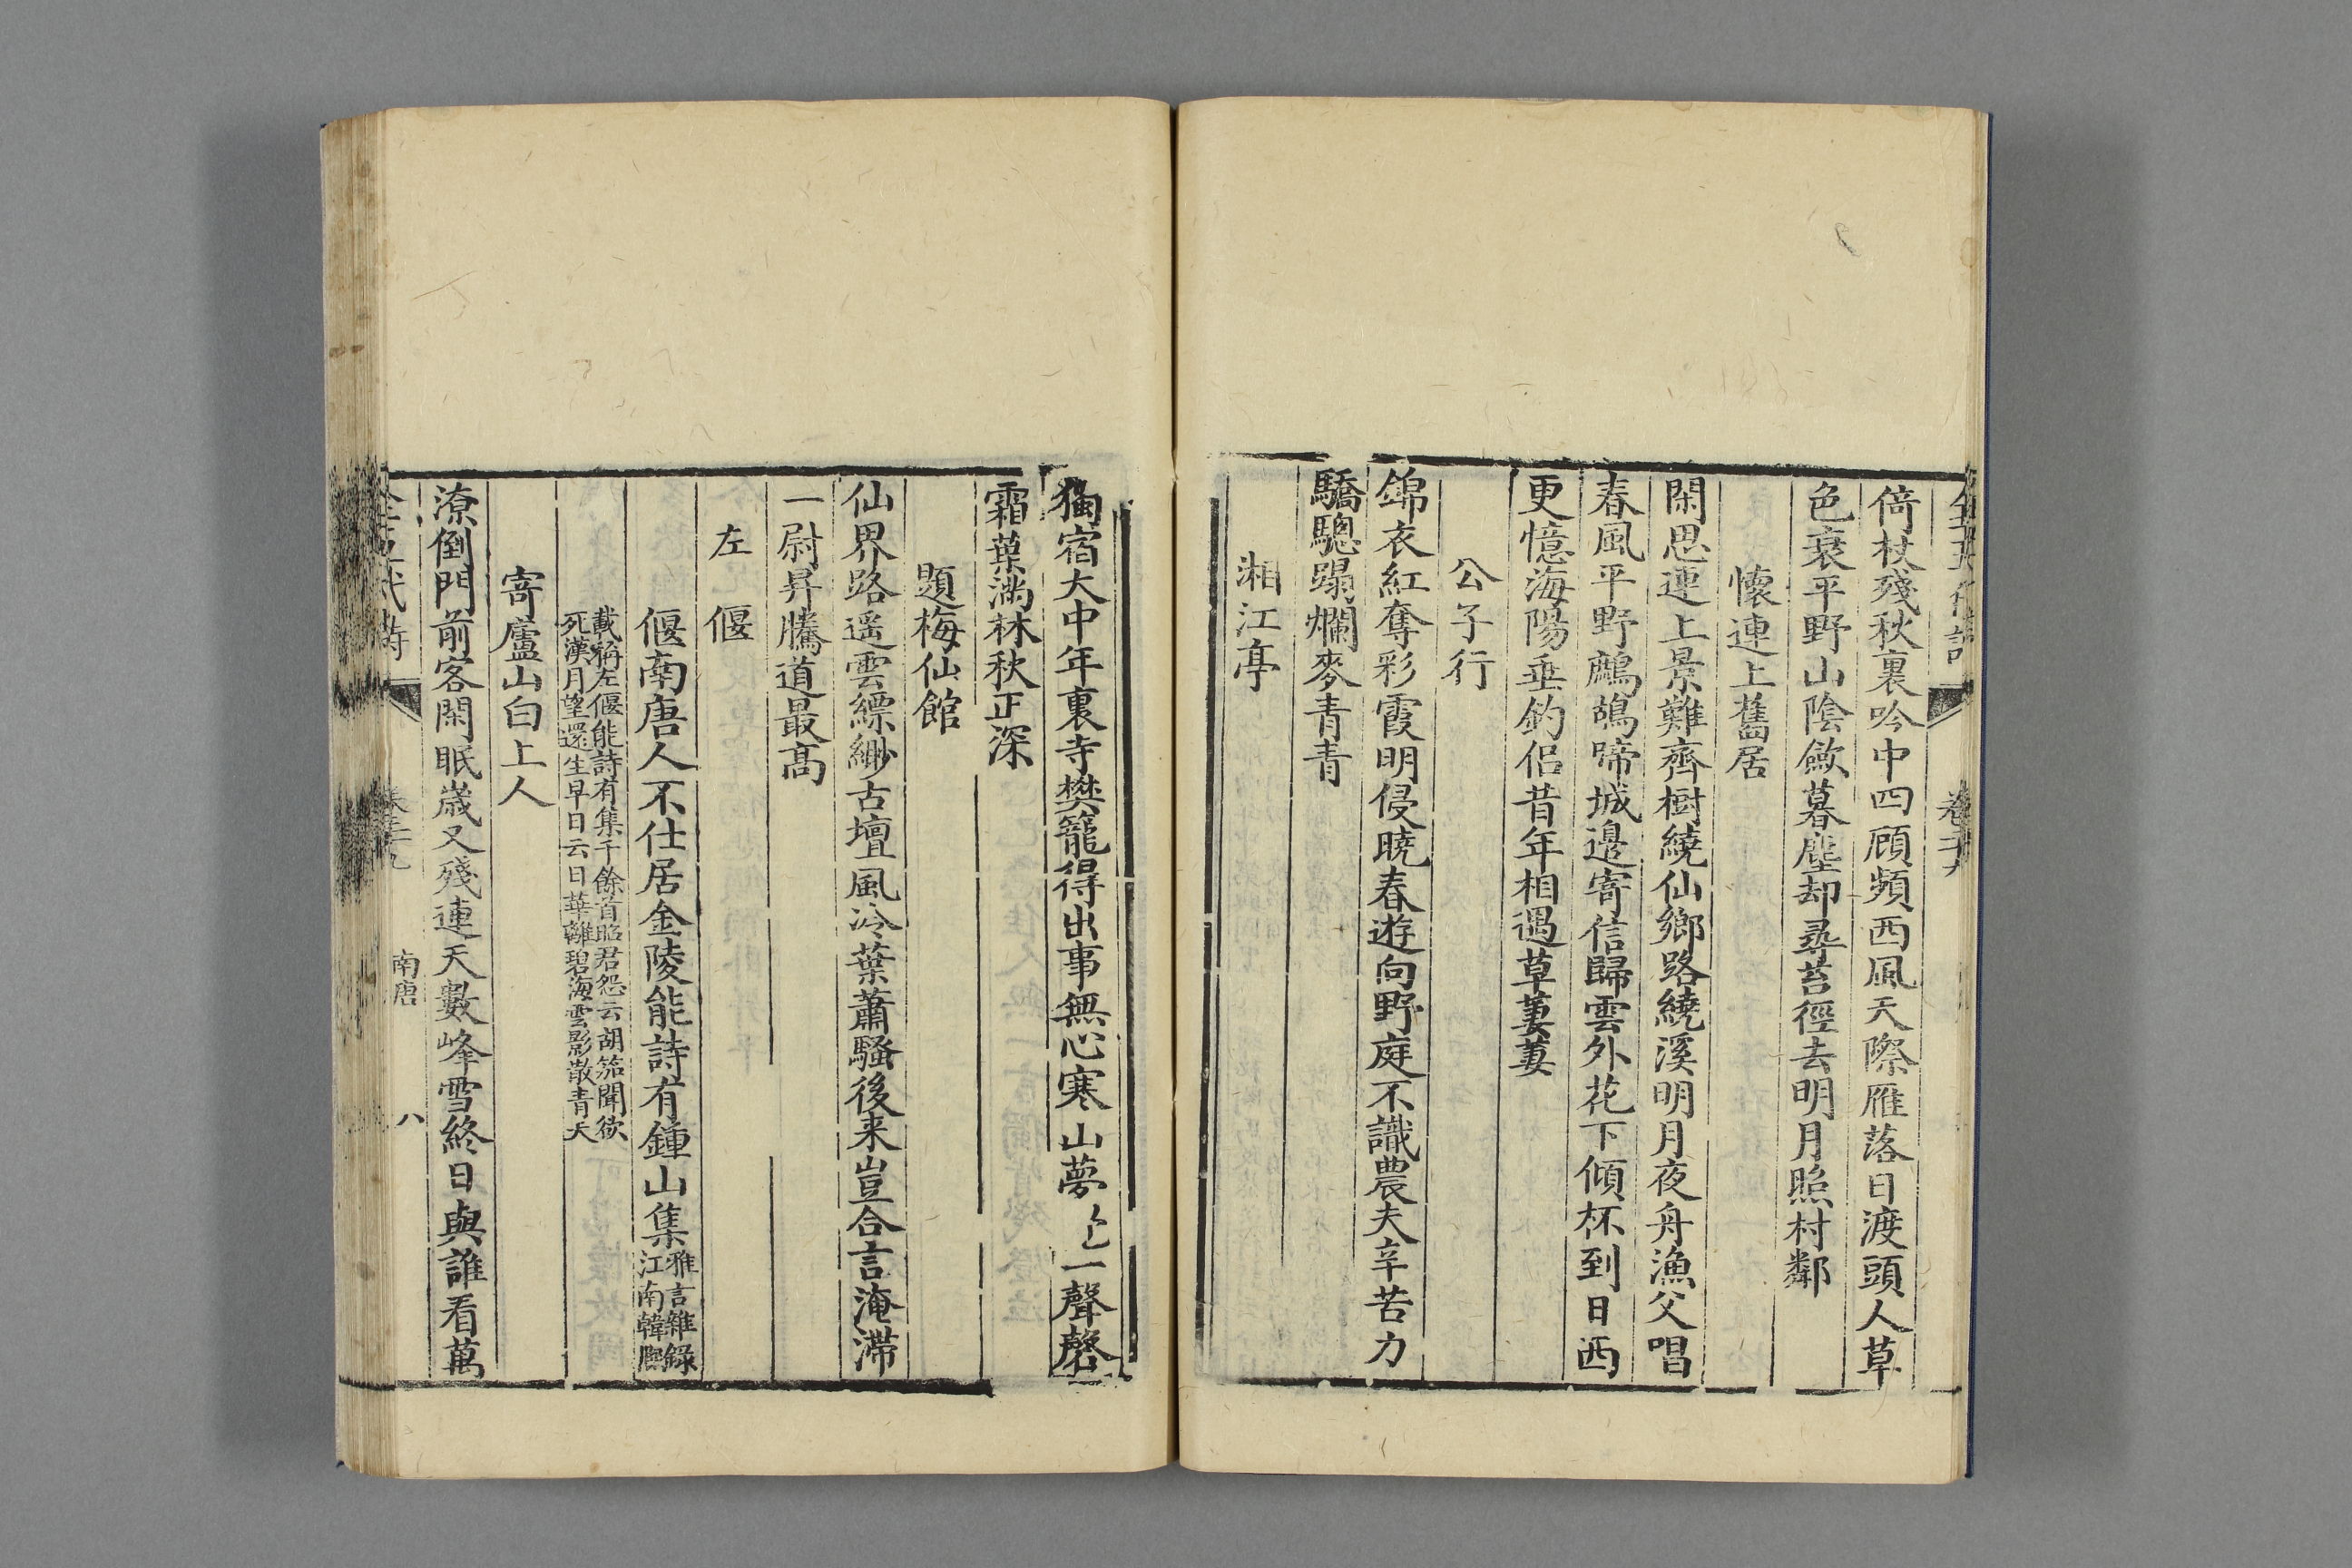 倚杖殘秋裏吟中四顧頻西風天際雁落日渡頭人草
色衰平野山陰斂暮塵却尋苔徑去明月照村鄰
懷連上舊居
閑思連上景難齊樹繞仙鄉路繞溪明月夜舟漁父唱
春風平野鷓鴣啼城邉寄信歸雲外花下傾杯到日西
更憶海陽垂釣侣昔年相遇草萋萋
公子行
錦衣紅奪彩霞明侵曉春遊向野庭不識農夫辛苦力
驕驄蹋爛麥青青
湘江亭
獨宿大中年裏寺樊籠得出事無心寒山夢一聲磬
霜葉滿林秋正深
題梅仙館
仙界路遥雲縹緲古壇風泠葉蕭騷後来豈合言淹滯
一尉昇騰道最髙
左偃
偃南唐人不仕居金陵能詩有鍾山集雅言雜録
江南韓熙
載稱左偃能詩有集千餘首昭君怨云胡笳聞欲
死漢月望還生早日云日華離碧海雲影散青天
寄廬山白上人
潦倒門前客閑眠嵗又殘連天數峰雪終日與誰看萬
南唐
八